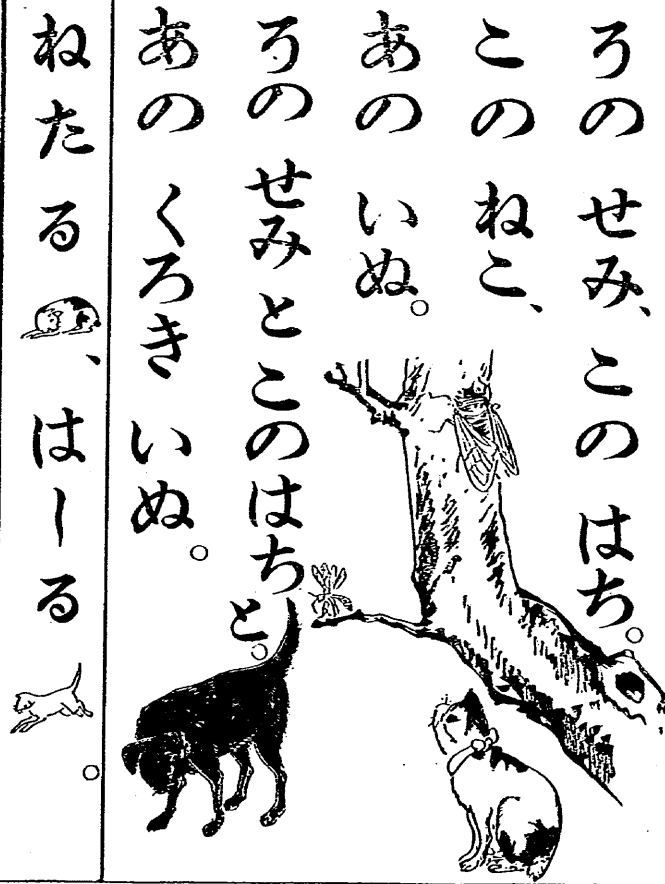 その せみ、この はち。
この ねこ、
あの いぬ。
その せみと このはちと。
あの くろき いぬ。
ねたる、はしる。